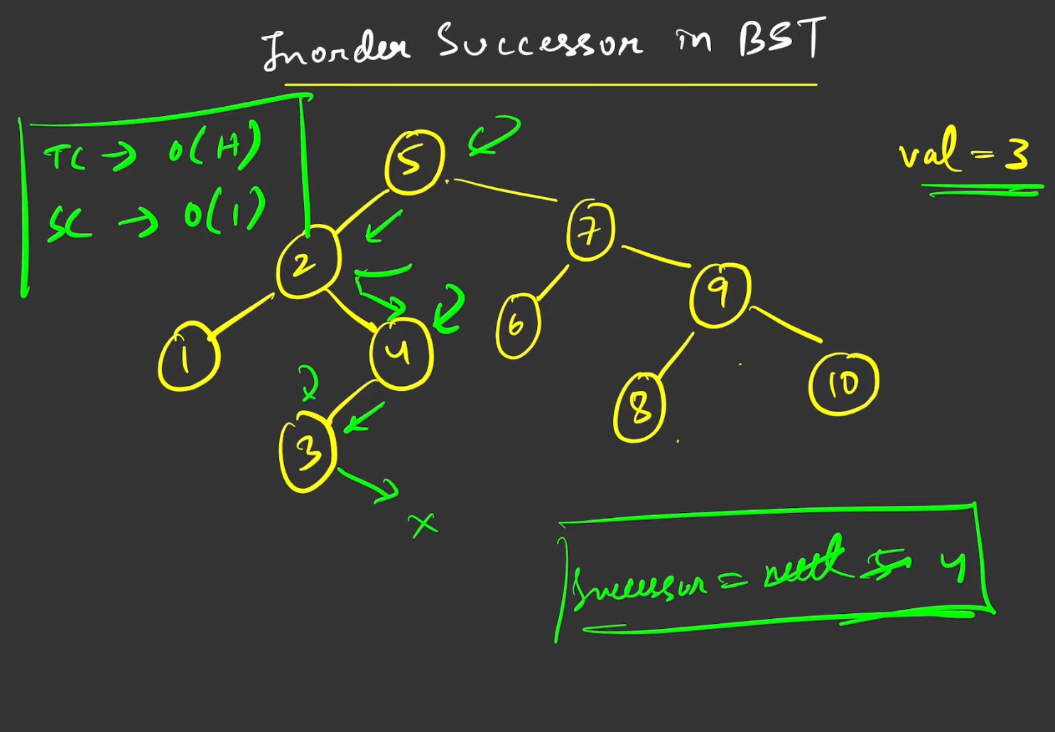 Inorder Successor in BST
TC → O(H)
SC → O(1)
val = 3
5
2
7
1
4
6
9
3
8
10
x
Successor = null 5 4